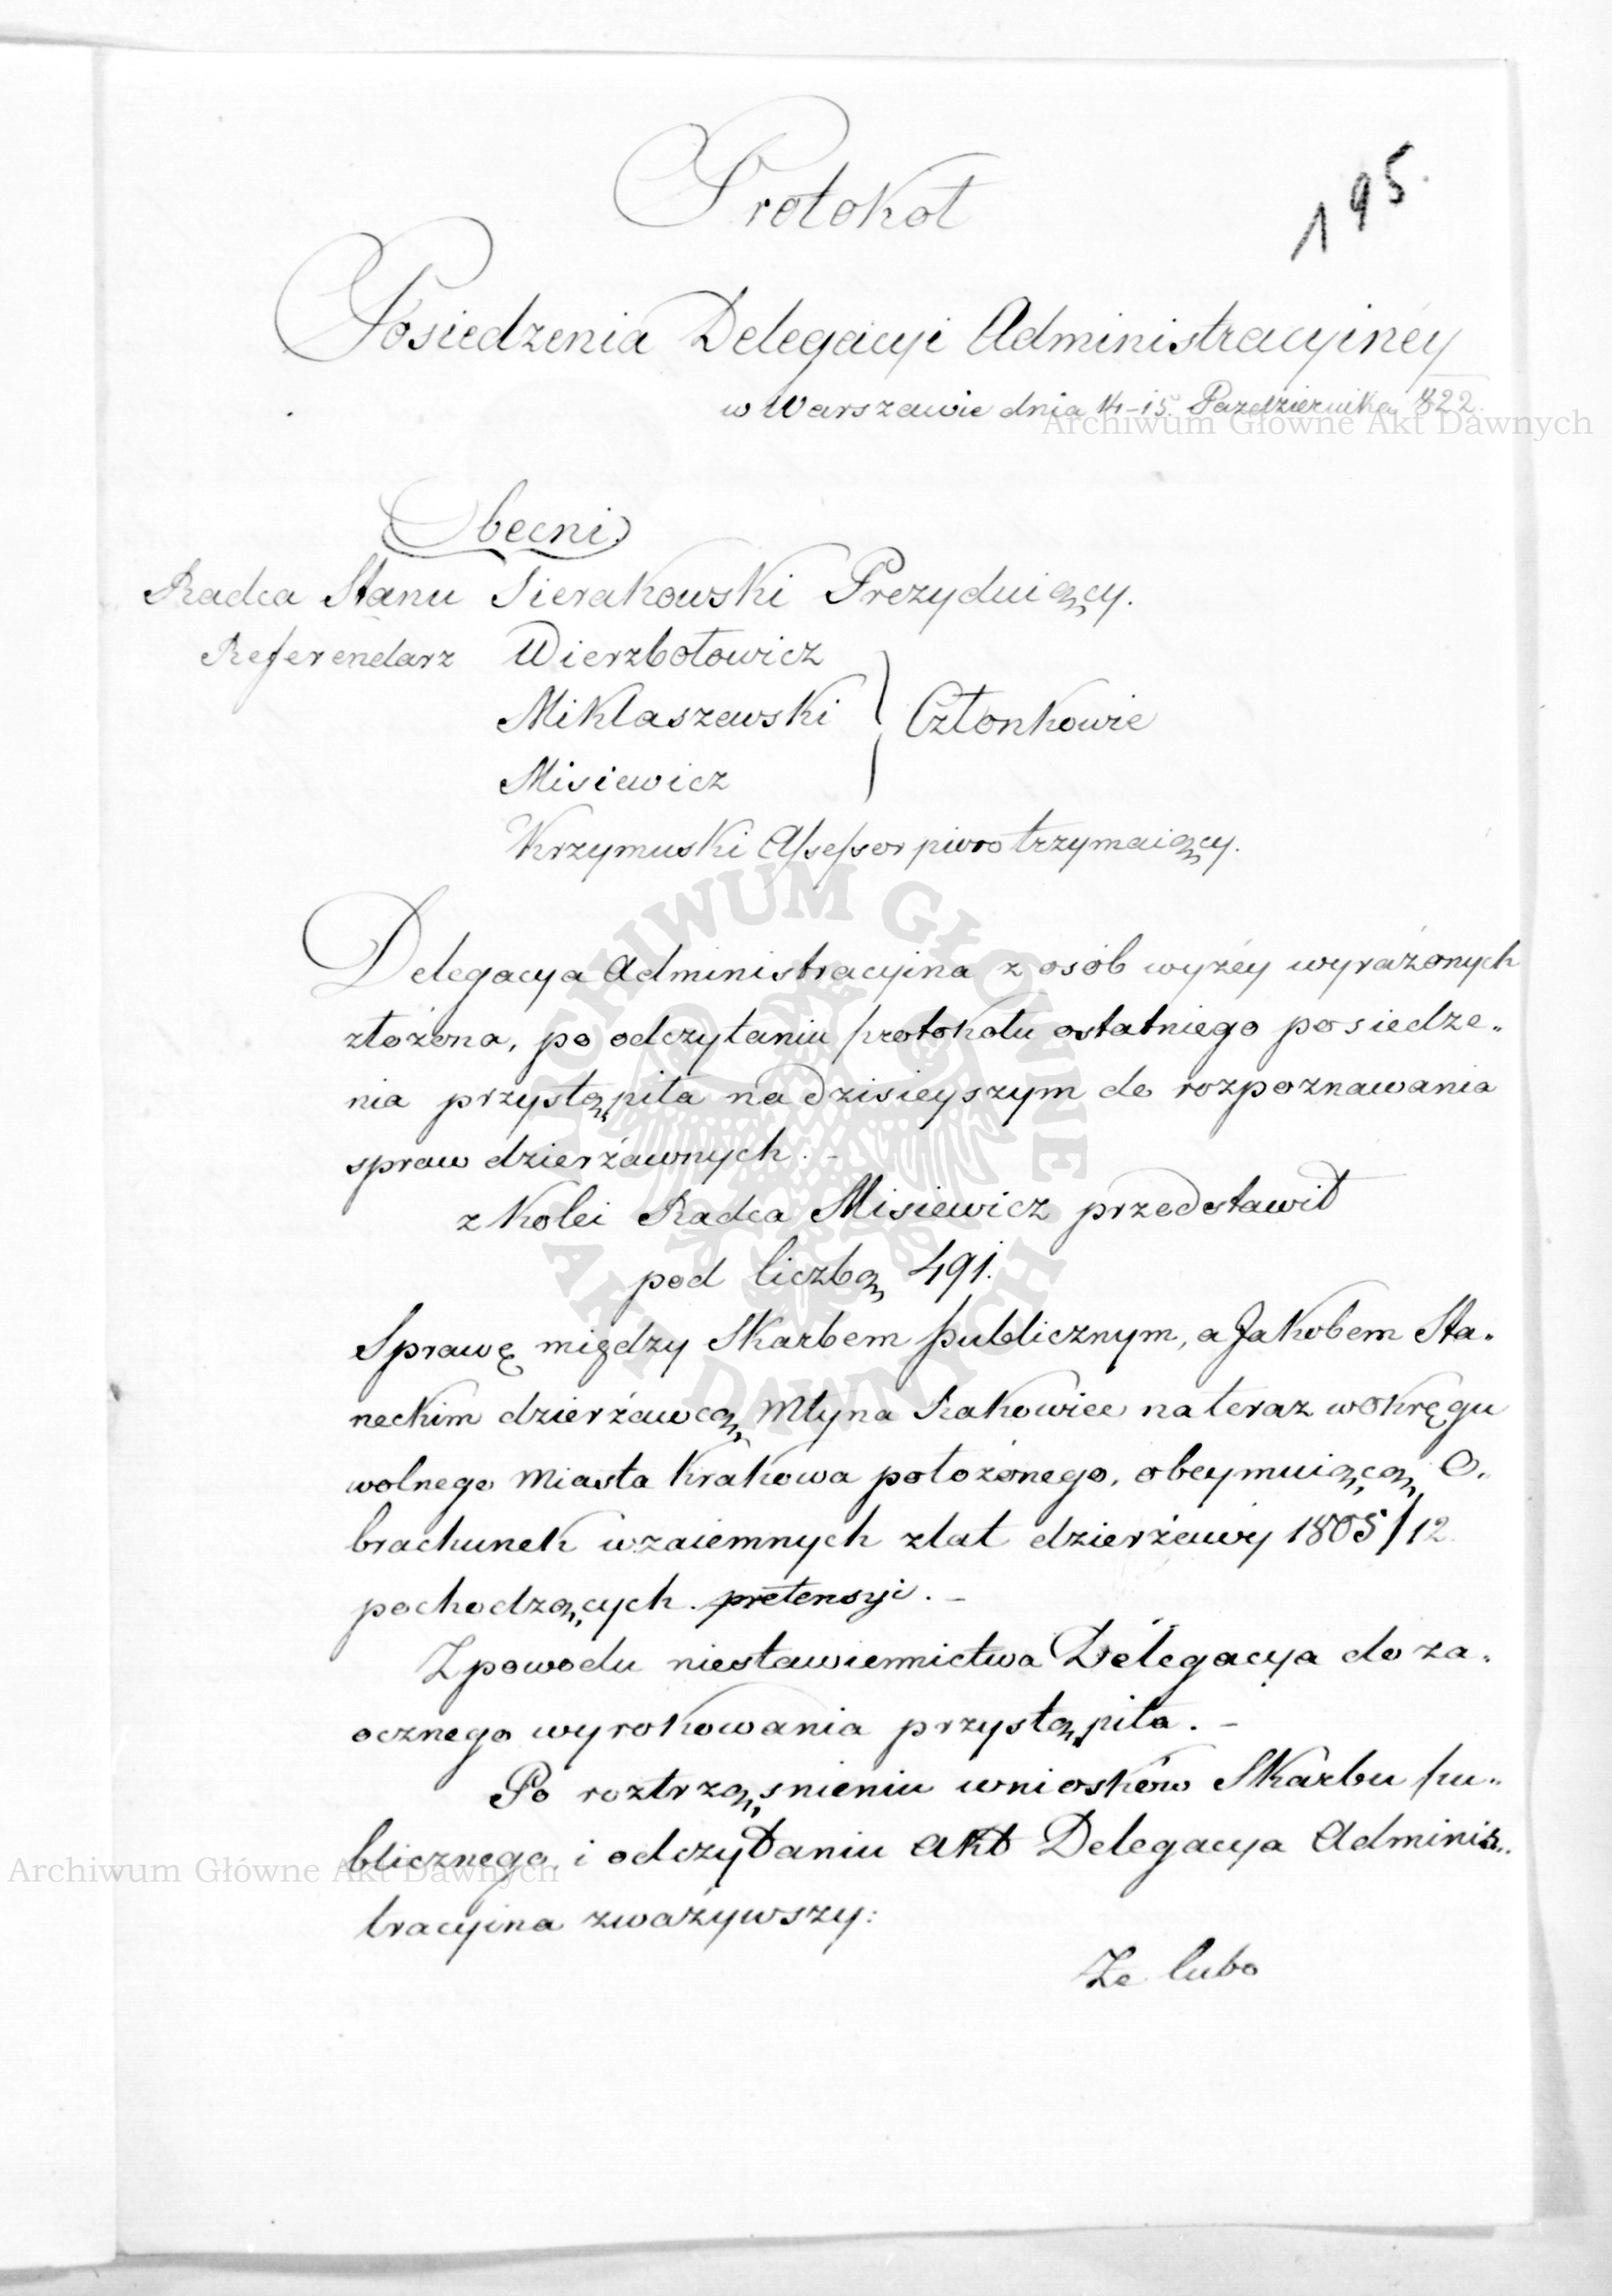 Protokoł
195.
Posiedzenia Delegacyi Administracyiney
w Warszawie dnia 14-15. Pazdziernika 822.
Archiwum Główne Akt Dawnych
Obecni
Radca Stanu Sierakowski Prezyduiący.
Referendarz Wierzbołowicz
Miklaszewski Członkowie
Misiewicz
Krzymuski Assessor pioro trzymaiący.
Delegacya Administracyina z osób wyżey wyrażonych
złożona, po odczytaniu protokołu ostatniego posiedze„
nia przystąpiła na dzisieyszym do rozpoznawania
spraw dzierżawnych. –
z kolei Radca Misiewicz przedstawił
pod liczbą 491.
Sprawę między Skarbem publicznym, a Jakobem Sta„
neckim dzierżawcą Młyna Rakowice na teraz w okręgu
wolnego Miasta Krakowa położonego, obeymuiącą O„
brachunek wzaiemnych z lat dzierżawy 1805/12
pochodzących pretensyi. –
Z powodu niestawiennictwa Delegacya do za„
ocznego wyrokowania przystąpiła. –
Po roztrząśnieniu wniosków Skarbu pu„
blicznego i odczytaniu Akt Delegacya Adminis„
tracyina zważywszy:
Że lubo
ARCHIWUM GŁÓWNE AKT DAWNYCH
Archiwum Główne Akt Dawnych